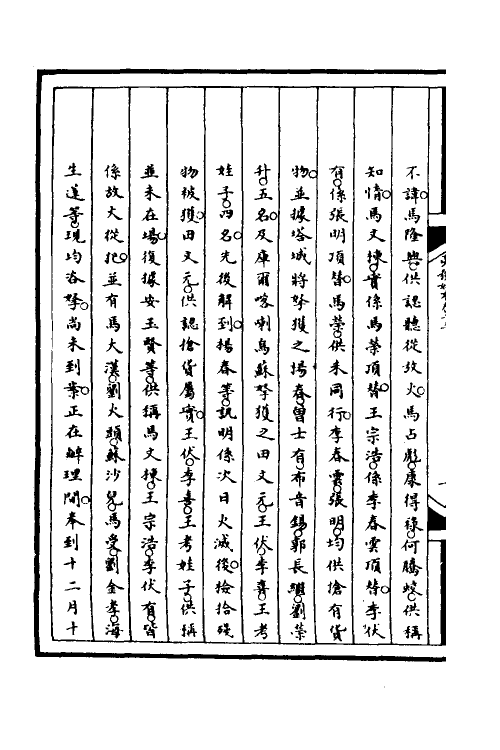 不諱馬隆興供認聽從放火馬占彪康得祿何騰蛟供稱
知情馬文棟實係馬榮頂替王宗浩係李春雲頂替李伏
有係張明項替馬榮供未同行李春雲張明均供搶有貨
物並據塔城將拏獲之楊春曾士有布音錫郭長繼劉榮
升五名及庫爾喀喇烏蘇拏獲之田文元王伏李喜王考
娃子四名先後解到楊春等訊明係次日火滅後撿拾殘
物被獲田文元供認搶貨屬實王伏李喜王考娃子供稱
並未在場復據安玉賢等供稱馬文棟王宗浩李伏有皆
係放火從犯並有馬大漢劉火頭蘇沙兒馬受劉金孝海
生蓮等現均咨拏尚未到案正在辦理間奉到十二月十